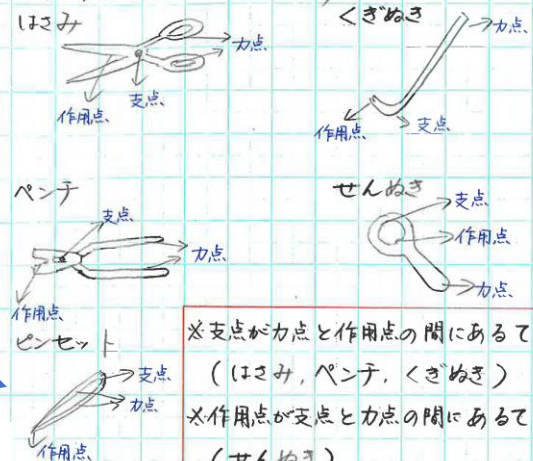 はさみ
力点
支点
作用点
くぎぬき
力点
作用点
支点
ペンチ
支点
力点
作用点
せんぬき
支点
作用点
力点
ピンセット
支点
力点
作用点
※支点が力点と作用点の間にあるて
(はさみ,ペンチ,くぎぬき)
※作用点が支点と力点の間にあるて
(せんぬき)